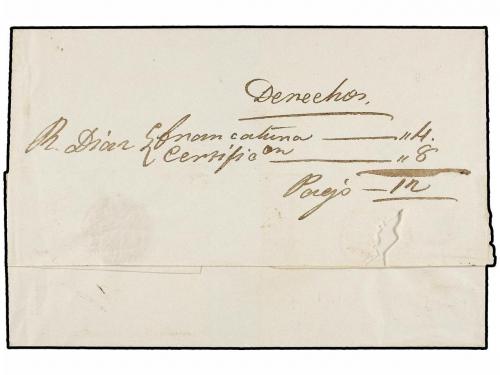 Derechos.
R. Diaz { francatura — „ 4.
Certificon — „ 8
Pagó — 12